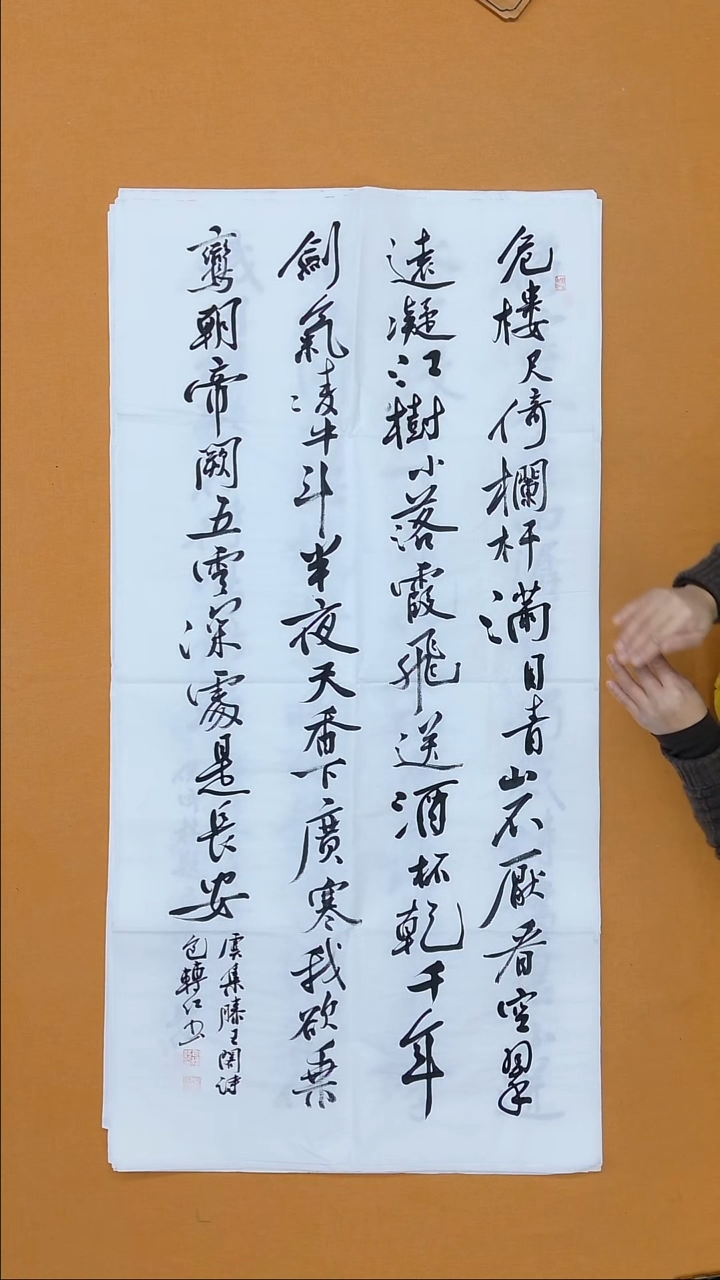 危楼尺倚欄杆滿目青山不厭看空翠
遠凝江樹小落霞飛送酒杯乾千年
劍氣凌牛斗半夜天香下廣寒我欲乘
鸞朝帝闕五雲深處是長安
虞集滕王閣詩
包轉红书